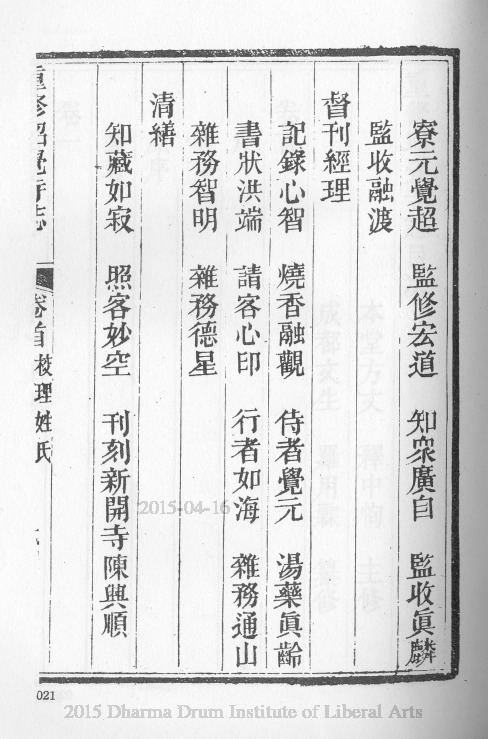 寮元覺超　監修宏道　知衆廣自　監收眞麟
監收融渡
督刊經理
記錄心智　燒香融觀　侍者覺元　湯藥眞齡
書狀洪端　請客心印　行者如海　雜務通山
雜務智明　雜務德星
清繕
知藏如寂　照客妙空　刊刻新開寺陳興順
重修昭覺寺志　卷首　校理姓氏
2015-04-16
021
2015 Dharma Drum Institute of Liberal Arts